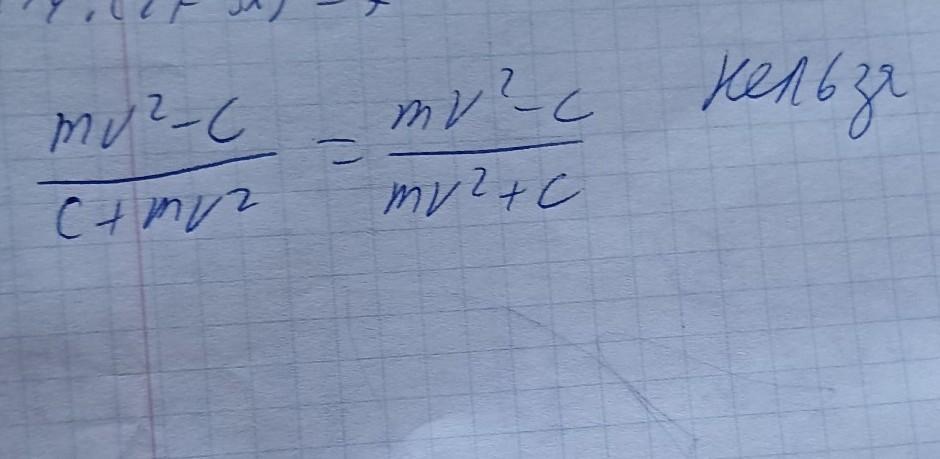 mv²-c / c+mv² = mv²-c / mv²+c нельзя